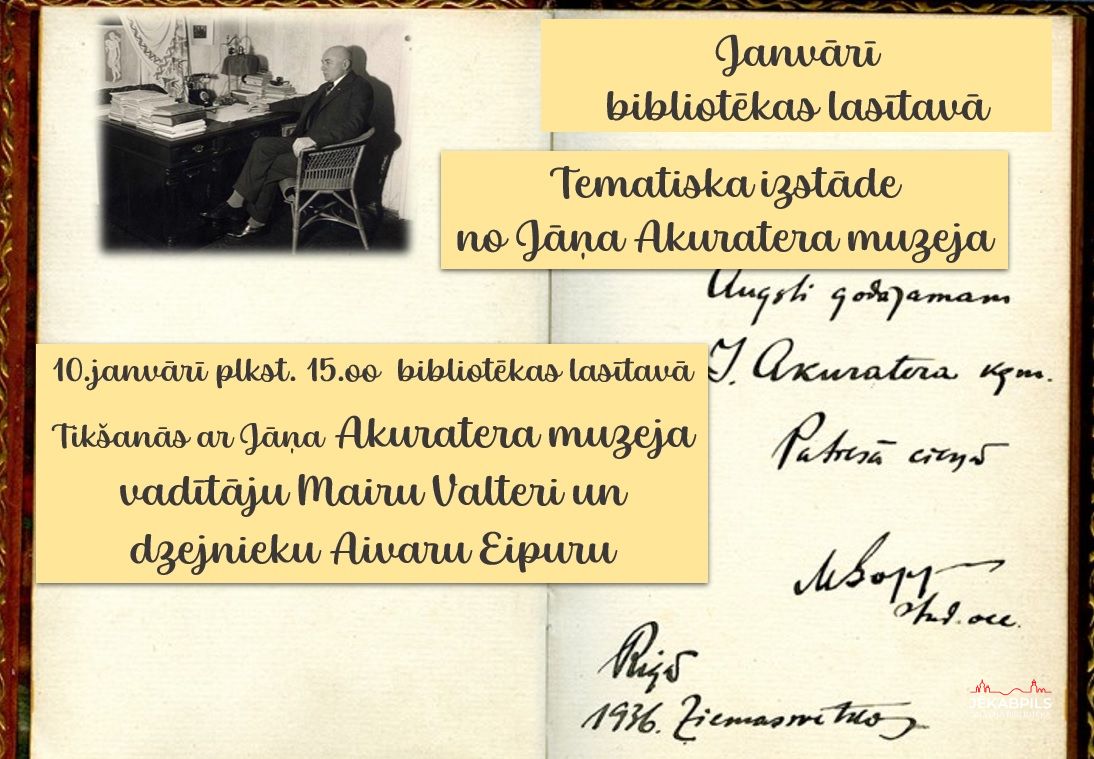 Janvārī
bibliotēkas lasītavā
Tematiska izstāde
no Jāņa Akuratera muzeja
Augsti godājamam
J. Akuratera kgm.
Patiesā cieņā
10.janvārī plkst. 15.oo bibliotēkas lasītavā
Tikšanās ar Jāņa Akuratera muzeja
vadītāju Mairu Valteri un
dzejnieku Aivaru Eipuru
stud. oec.
Rīgā
1936. Ziemassvētkos
JĒKABPILS